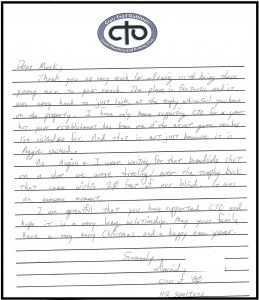 cto
Dear Mark,
Thank you so very much for allowing us to bring these
young men to your ranch. The place is fantastic and it
was very hard to just look at the trophy whitetail you have
on the property. I have only been supporting CTO for a year
but your establishment has been one of the great ranches
I've visited so far. And that is not just because it is
Aggie owned.
As Augie & I were waiting for that broadside shot
on a doe we were drooling over the trophy buck
that came within 20 feet of our blind. It was
an awesome moment.
I am grateful that you have supported CTO and
hope it is a very long relationship. May your family
have a very merry Christmas and a happy new year.
Sincerely
David
class of '80
H2 spartans